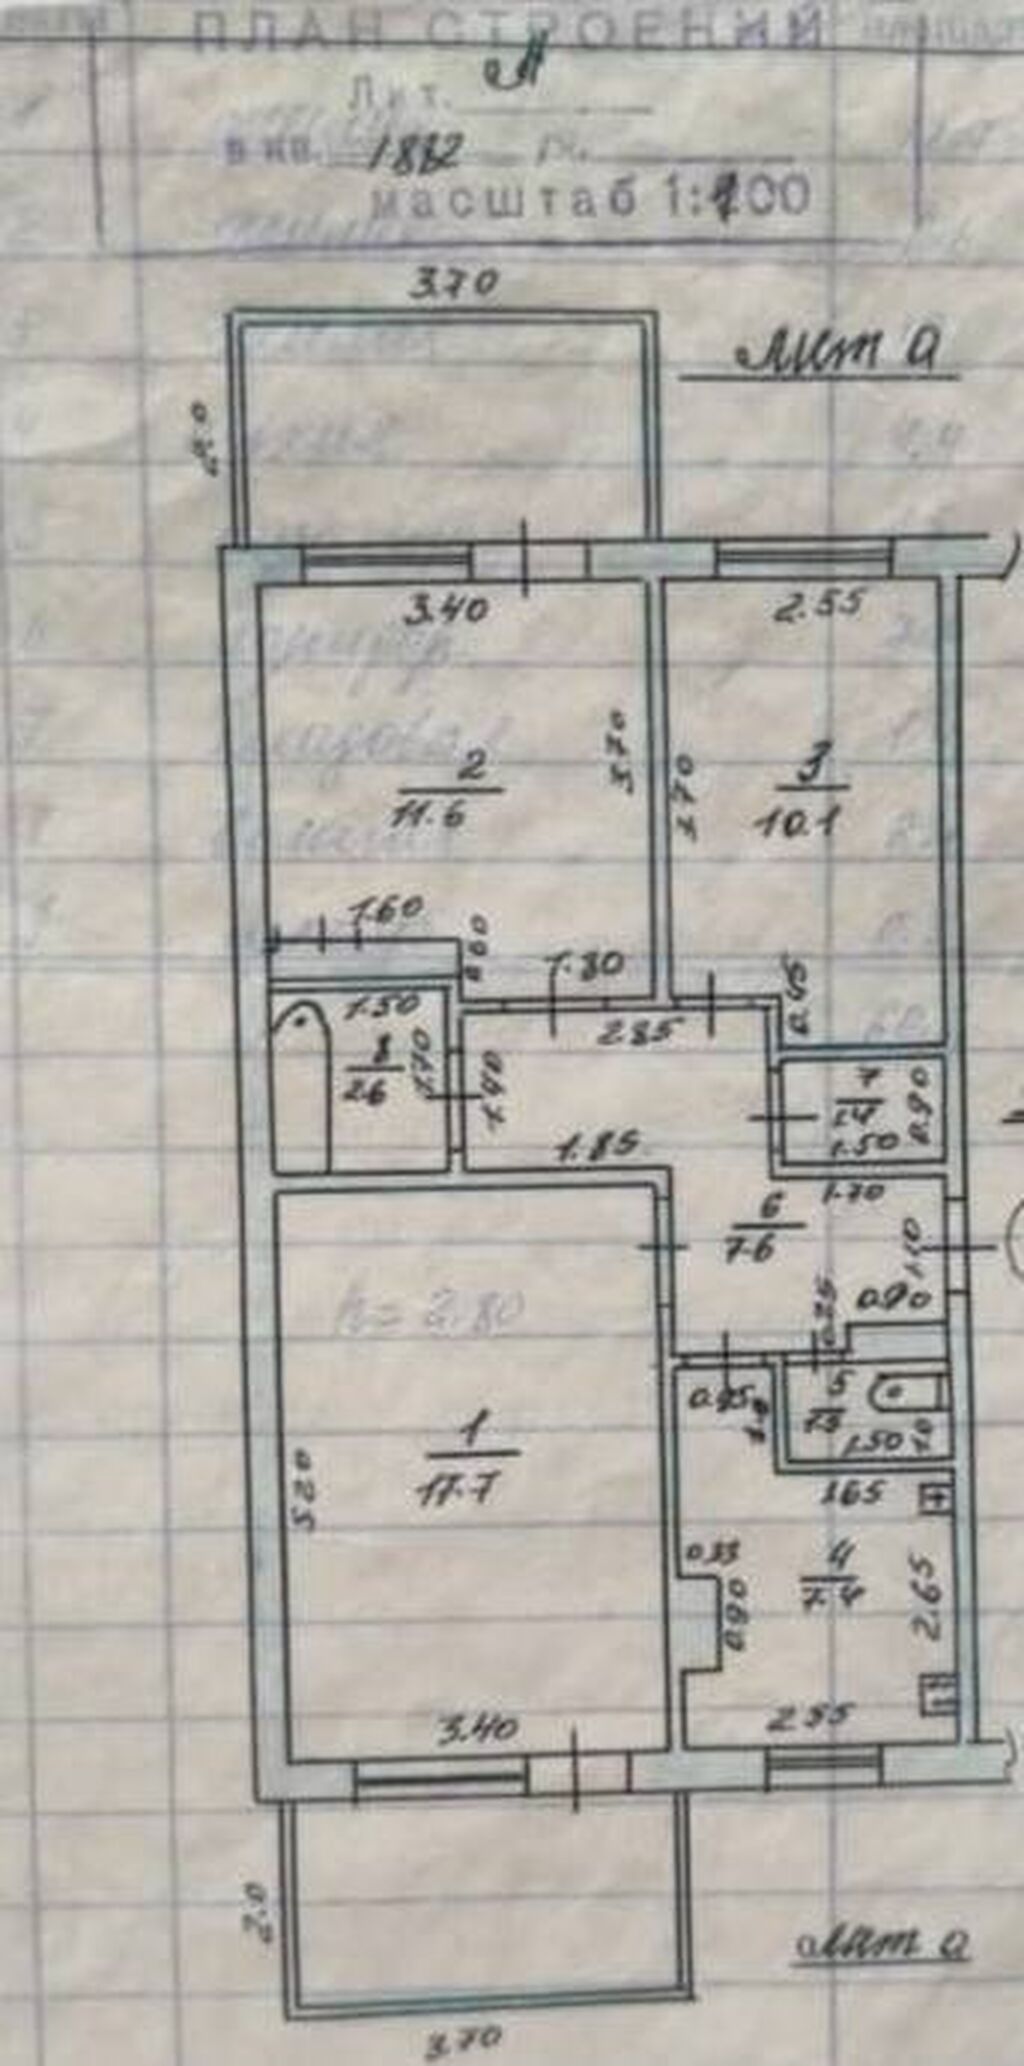 ПЛАН СТРОЕНИЙ
Лит. А
в кв. 1882
масштаб 1:100
3.70
лит а
2.0
3.40
2.55
3.70
3.70
2
11.6
3
10.1
1.60
0.60
1.80
0.45
2.85
1.50
8
2.6
1.70
1.70
7
1.4
0.90
1.50
1.85
1.70
6
7.6
1.10
0.90
0.25
h= 2.80
0.95
5
1.50
1
17.7
5.20
1.65
0.33
4
7.4
0.90
2.65
3.40
2.55
2.0
лит а
3.70